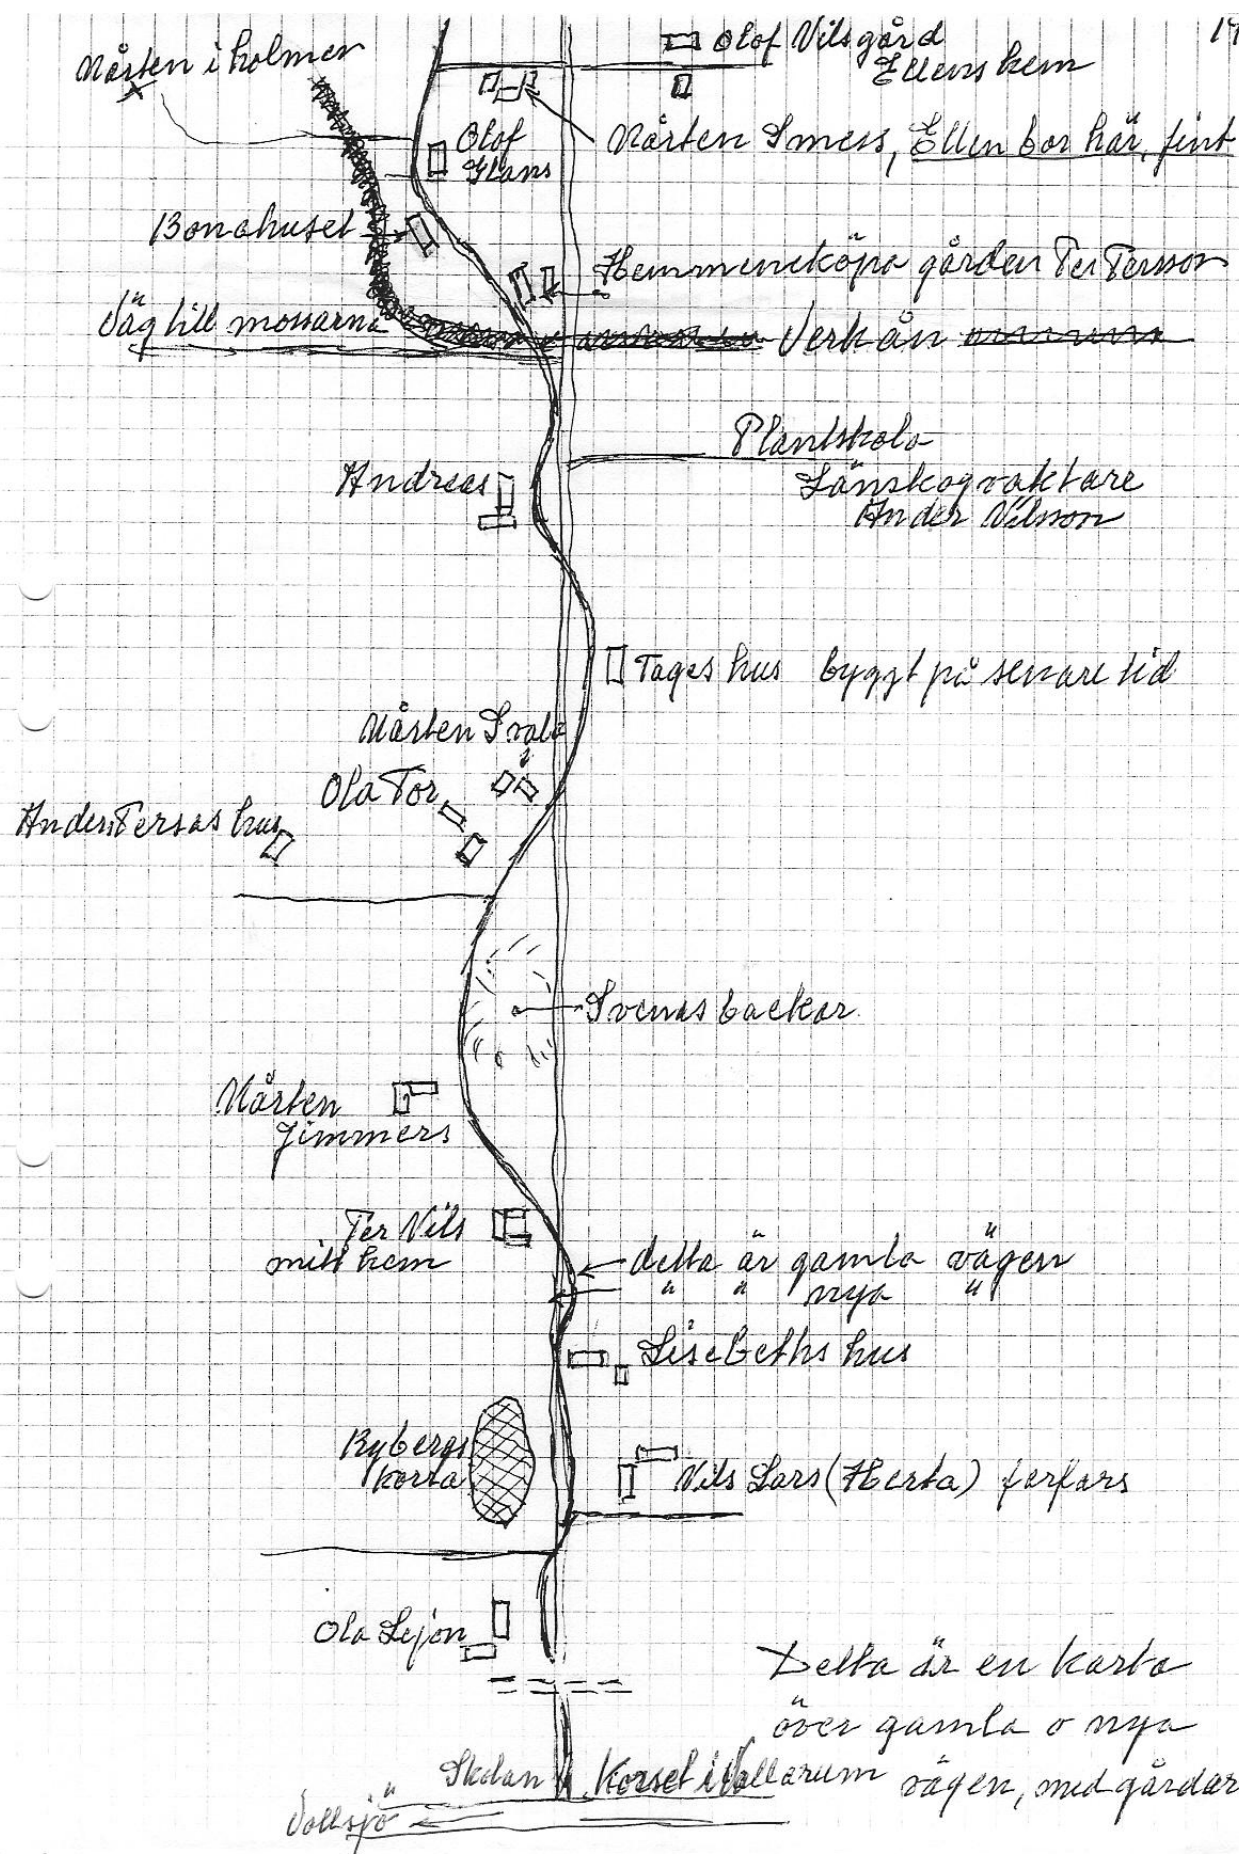 19
Olof Nilsgård
Ellens hem
Mårten i holmen
Mårten Smess, Ellen bor här, fint
Olof
Glans
Bonahuset
Hemmeneköpa gården Per Persson
Väg till mossarna
Verkån
Plantskola
Länskogvaktare
Ander Nilsson
Andreas
Tages hus byggt på senare tid
Mårten Svala
Ola Por
Anders Persas hus
Svenas backar
Mårten
Jimmers
Per Nils
mitt hem
detta är gamla vägen
" " nya "
Lisebeths hus
Rybergs
korra
Nils Lars (Herta) farfars
Ola Lejon
Detta är en karta
över gamla o nya
vägen, med gårdar
Skolan Korset i Vollarum
Vollsjö